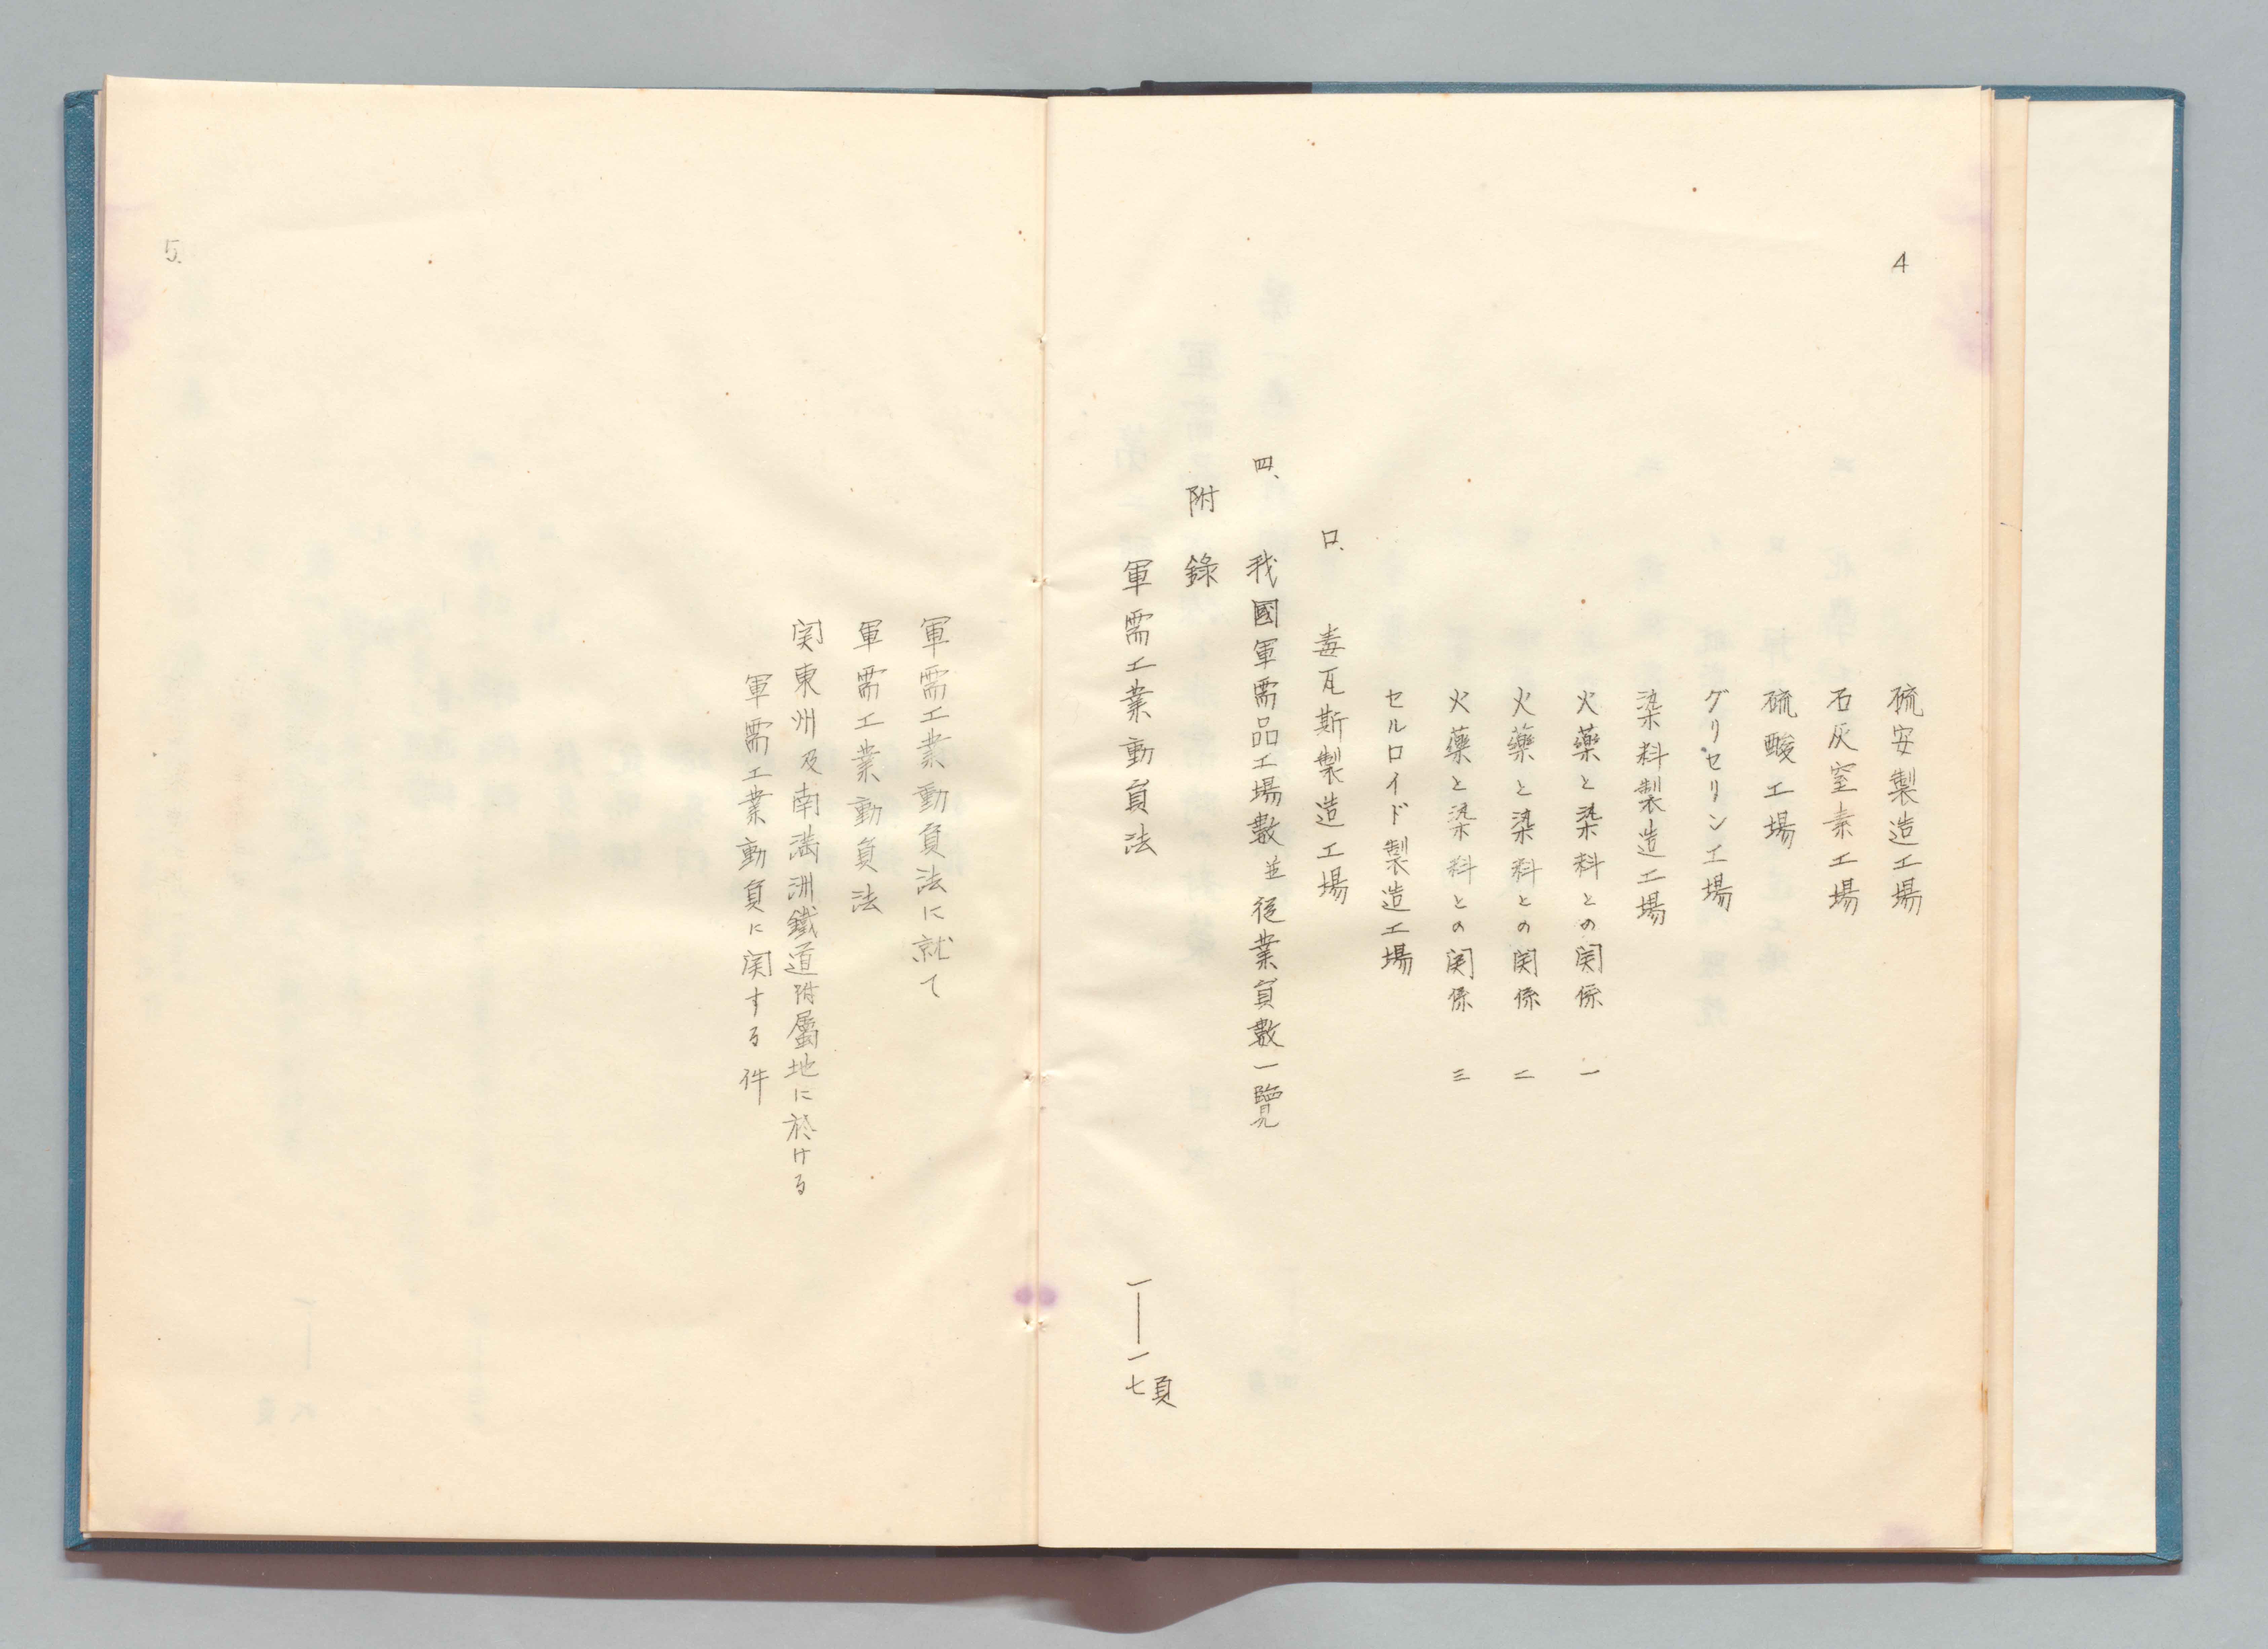 4
硫安製造工場
石灰窒素工場
硫酸工場
グリセリン工場
染料製造工場
火藥と染料との関係 一
火藥と染料との関係 二
火藥と染料との関係 三
セルロイド製造工場
ロ、毒瓦斯製造工場
四、我國軍需品工場數並從業員數一覽
附錄
軍需工業動員法 一——一七頁
軍需工業動員法に就て
軍需工業動員法
関東州及南満洲鐵道附屬地に於ける
軍需工業動員に関する件
5.